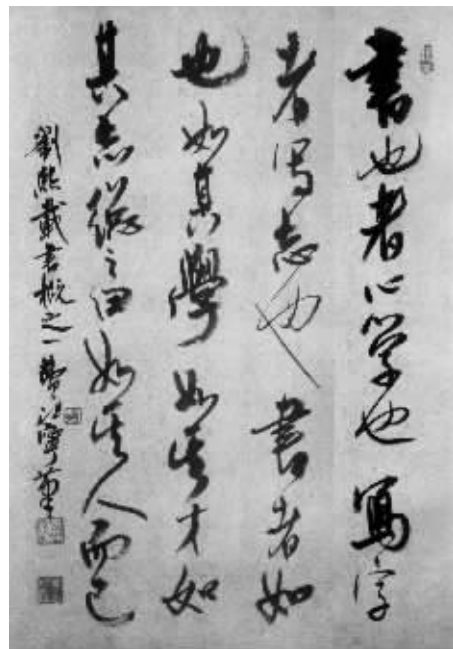 書也者心学也寫字
者写志也書者如
也如其學如其才如
其志總之曰如其人而已
劉熙載書概之一